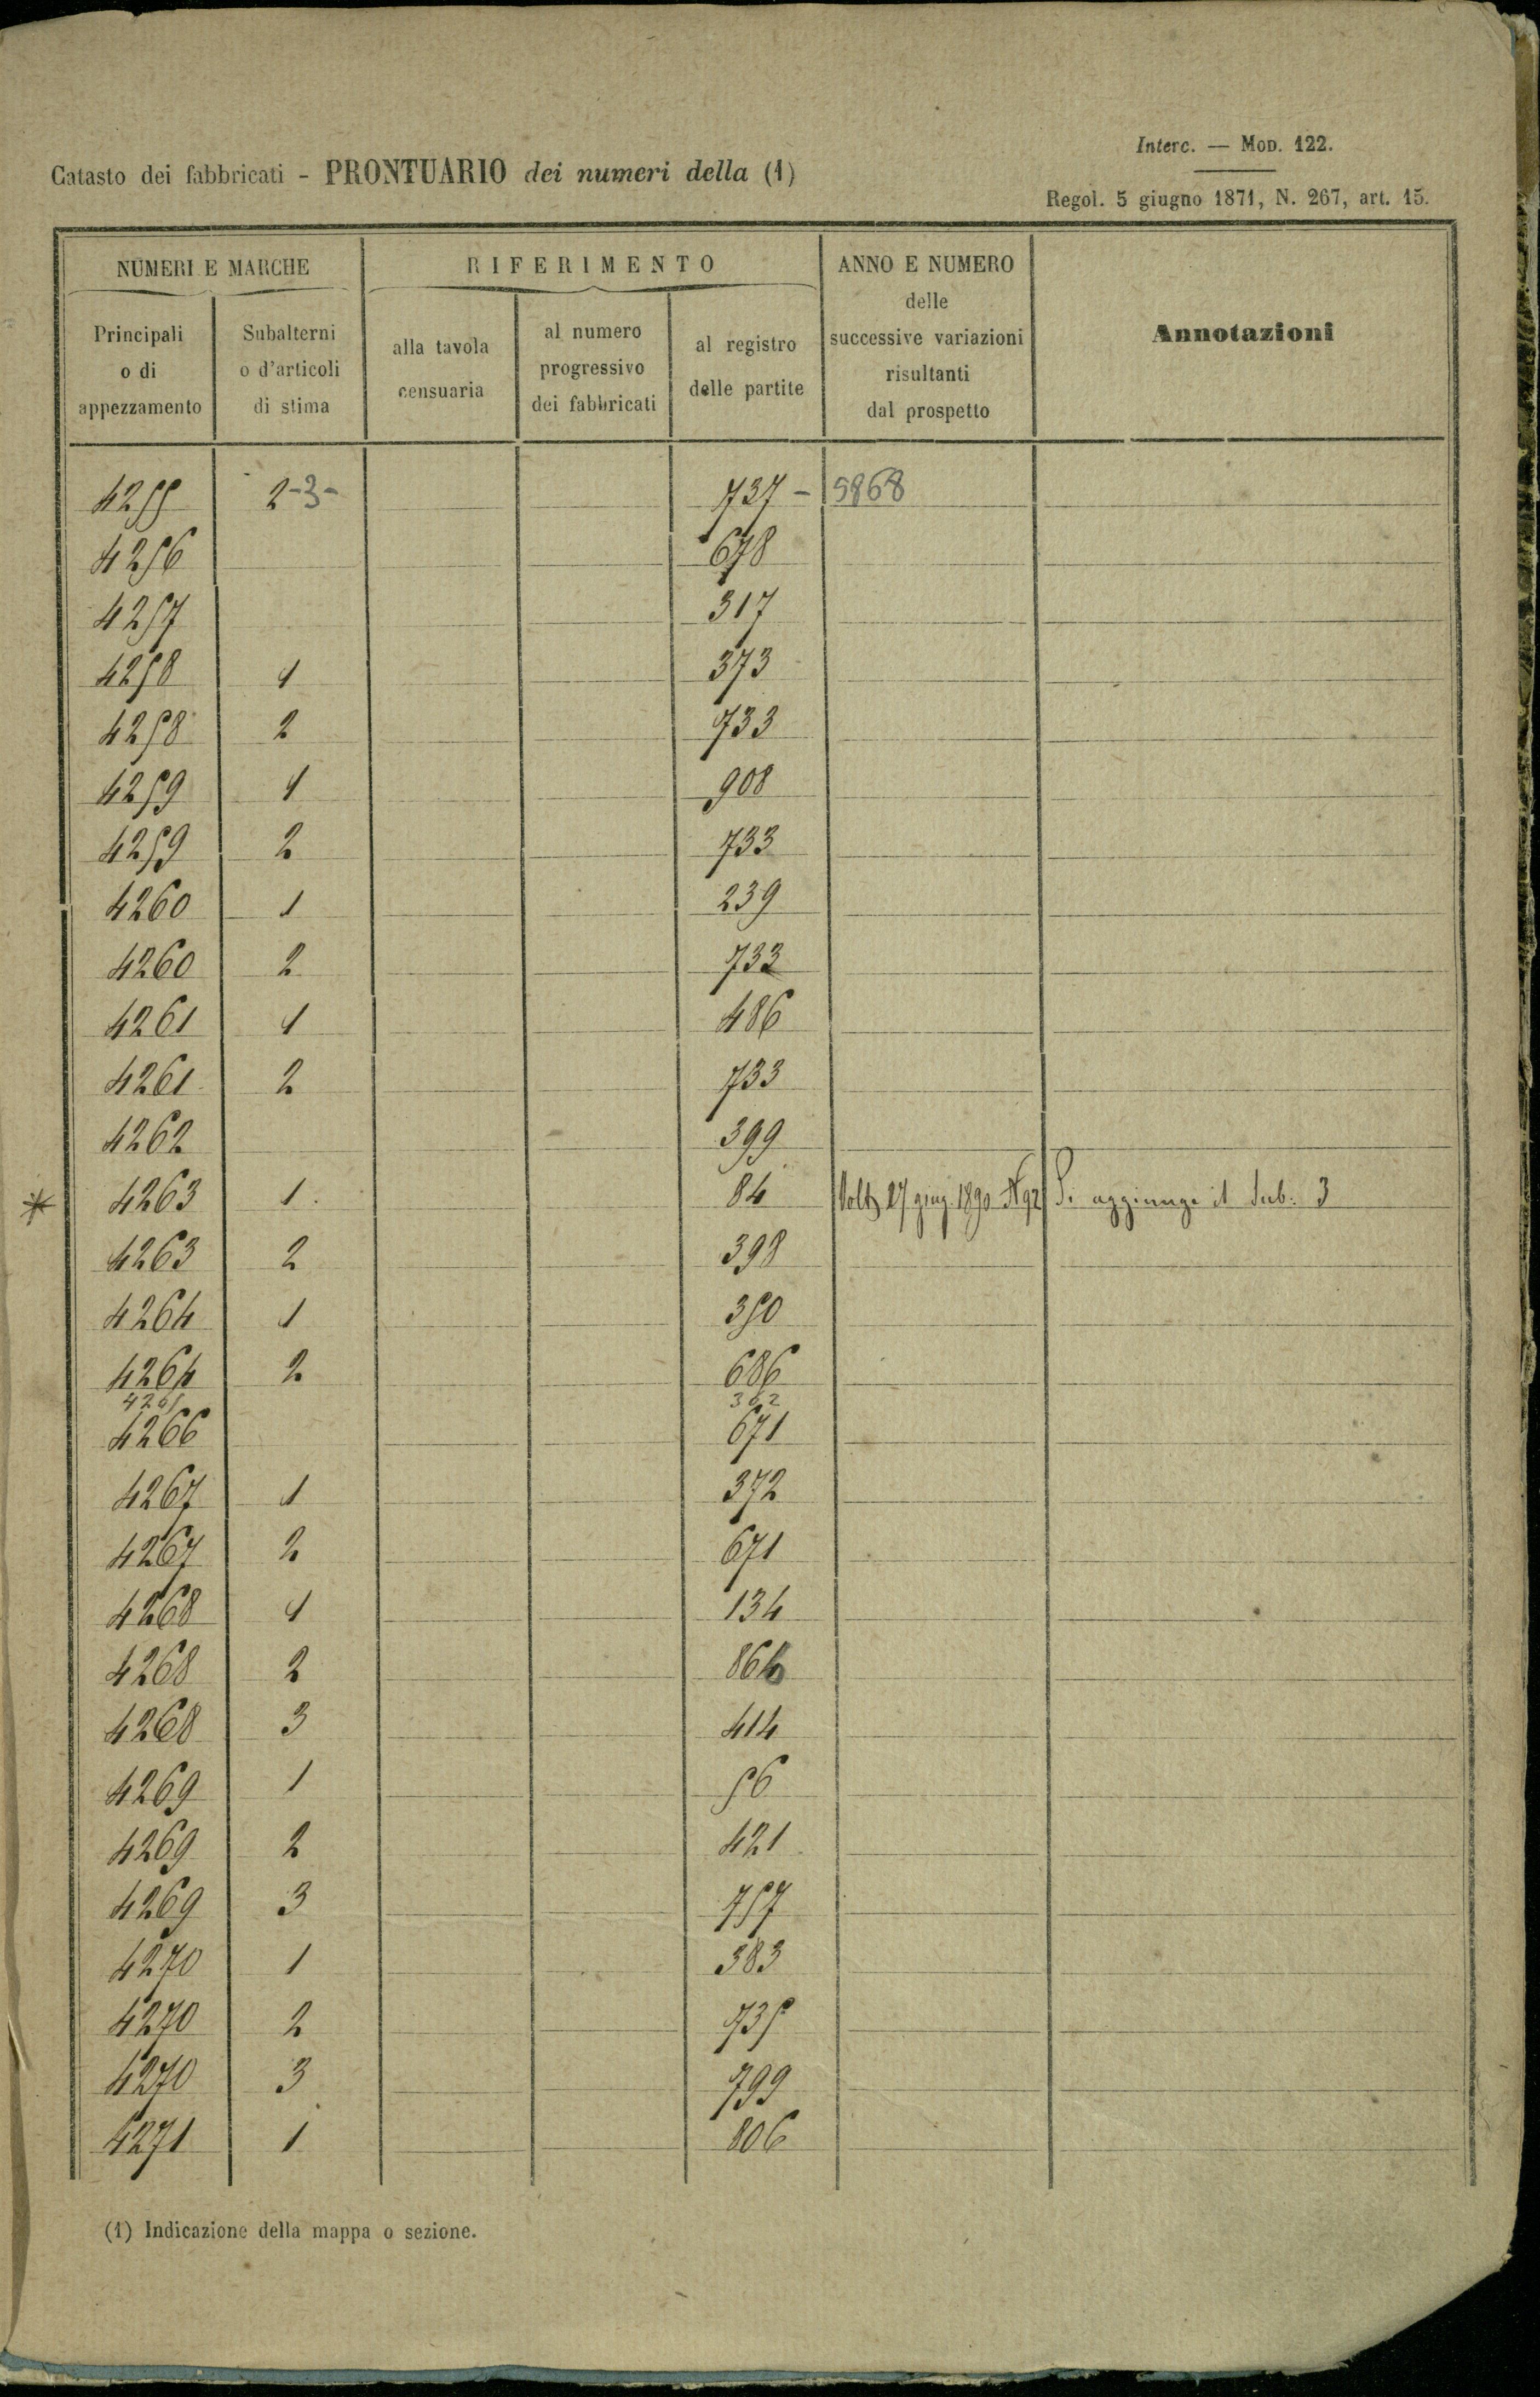 Interc. — Mod. 122.
Catasto dei fabbricati - PRONTUARIO dei numeri della (1)
Regol. 5 giugno 1871, N. 267, art. 15.
NUMERI E MARCHE
RIFERIMENTO
ANNO E NUMERO
delle
successive variazioni
risultanti
dal prospetto
Annotazioni
Principali
o di
appezzamento
Subalterni
o d'articoli
di stima
alla tavola
censuaria
al numero
progressivo
dei fabbricati
al registro
delle partite
4255 2-3- 737 - 5868
4256 678
4257 317
4258 1 373
4258 2 733
4259 1 908
4259 2 733
4260 1 239
4260 2 733
4261 1 486
4261 2 733
4262 399
* 4263 1 84 27 giug. 1890 N 92 Si aggiunge il Sub: 3
4263 2 398
4264 1 350
4264 2 686
4265 362
4266 671
4267 1 372
4267 2 671
4268 1 134
4268 2 866
4268 3 414
4269 1 56
4269 2 421
4269 3 757
4270 1 383
4270 2 735
4270 3 799
4271 1 806
(1) Indicazione della mappa o sezione.